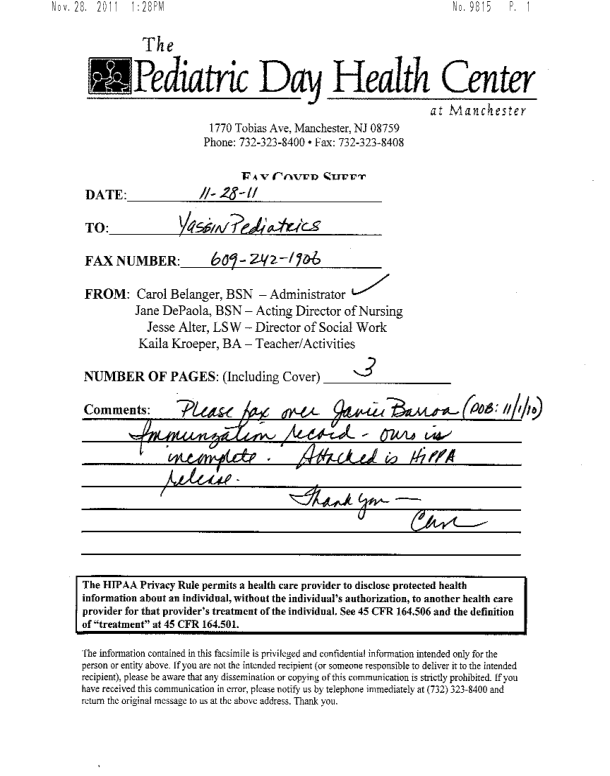 Nov. 28. 2011 1:28PM No. 9815 P. 1
The
Pediatric Day Health Center
at Manchester
1770 Tobias Ave, Manchester, NJ 08759
Phone: 732-323-8400 • Fax: 732-323-8408
FAX COVER SHEET
DATE: 11-28-11
TO: Yassin Pediatrics
FAX NUMBER: 609-242-1906
FROM: Carol Belanger, BSN – Administrator ✓
Jane DePaola, BSN – Acting Director of Nursing
Jesse Alter, LSW – Director of Social Work
Kaila Kroeper, BA – Teacher/Activities
NUMBER OF PAGES: (Including Cover) 3
Comments: Please fax over Javier Barroa (DOB: 11/1/10)
Immunization record - ours is
incomplete. Attached is HiPPA
release.
Thank you —
The HIPAA Privacy Rule permits a health care provider to disclose protected health
information about an individual, without the individual's authorization, to another health care
provider for that provider's treatment of the individual. See 45 CFR 164.506 and the definition
of "treatment" at 45 CFR 164.501.
The information contained in this facsimile is privileged and confidential information intended only for the
person or entity above. If you are not the intended recipient (or someone responsible to deliver it to the intended
recipient), please be aware that any dissemination or copying of this communication is strictly prohibited. If you
have received this communication in error, please notify us by telephone immediately at (732) 323-8400 and
return the original message to us at the above address. Thank you.